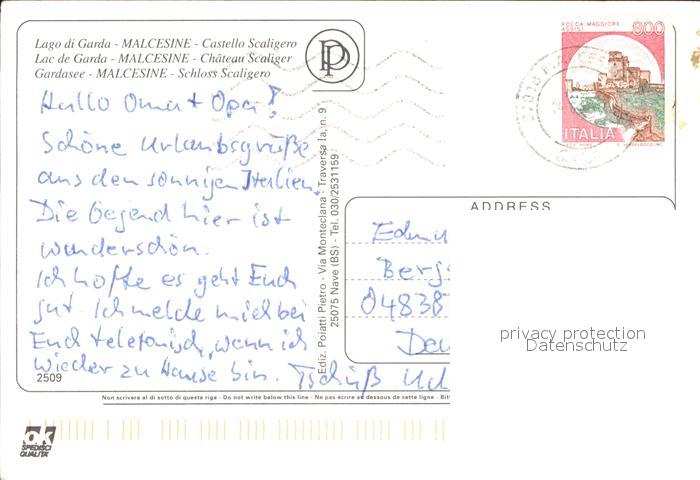 Lago di Garda - MALCESINE - Castello Scaligero
Lac de Garda - MALCESINE - Château Scaliger
Gardasee - MALCESINE - Schloss Scaligero
PP
ROCCA MAGGIORE
ASSISI
900
ITALIA
Hallo Oma + Opa!
Schöne Urlaubsgrüße
aus dem sonnigen Italien.
Die Gegend hier ist
wunderschön.
Ich hoffe es geht Euch
gut. Ich melde mich bei
Euch telefonisch, wenn ich
wieder zu Hause bin. Tschüß
2509
Ediz. Poiatti Pietro - Via Monteclana - Traversa Ia, n. 9
25075 Nave (BS) - Tel. 030/2531159
ADDRESS
04838
privacy protection
Datenschutz
Non scrivera al di sotto di questa riga - Do not write below this line - Ne pas écrire au dessous de cette ligne - Bit
ok
SPEDISCI
QUALITA'